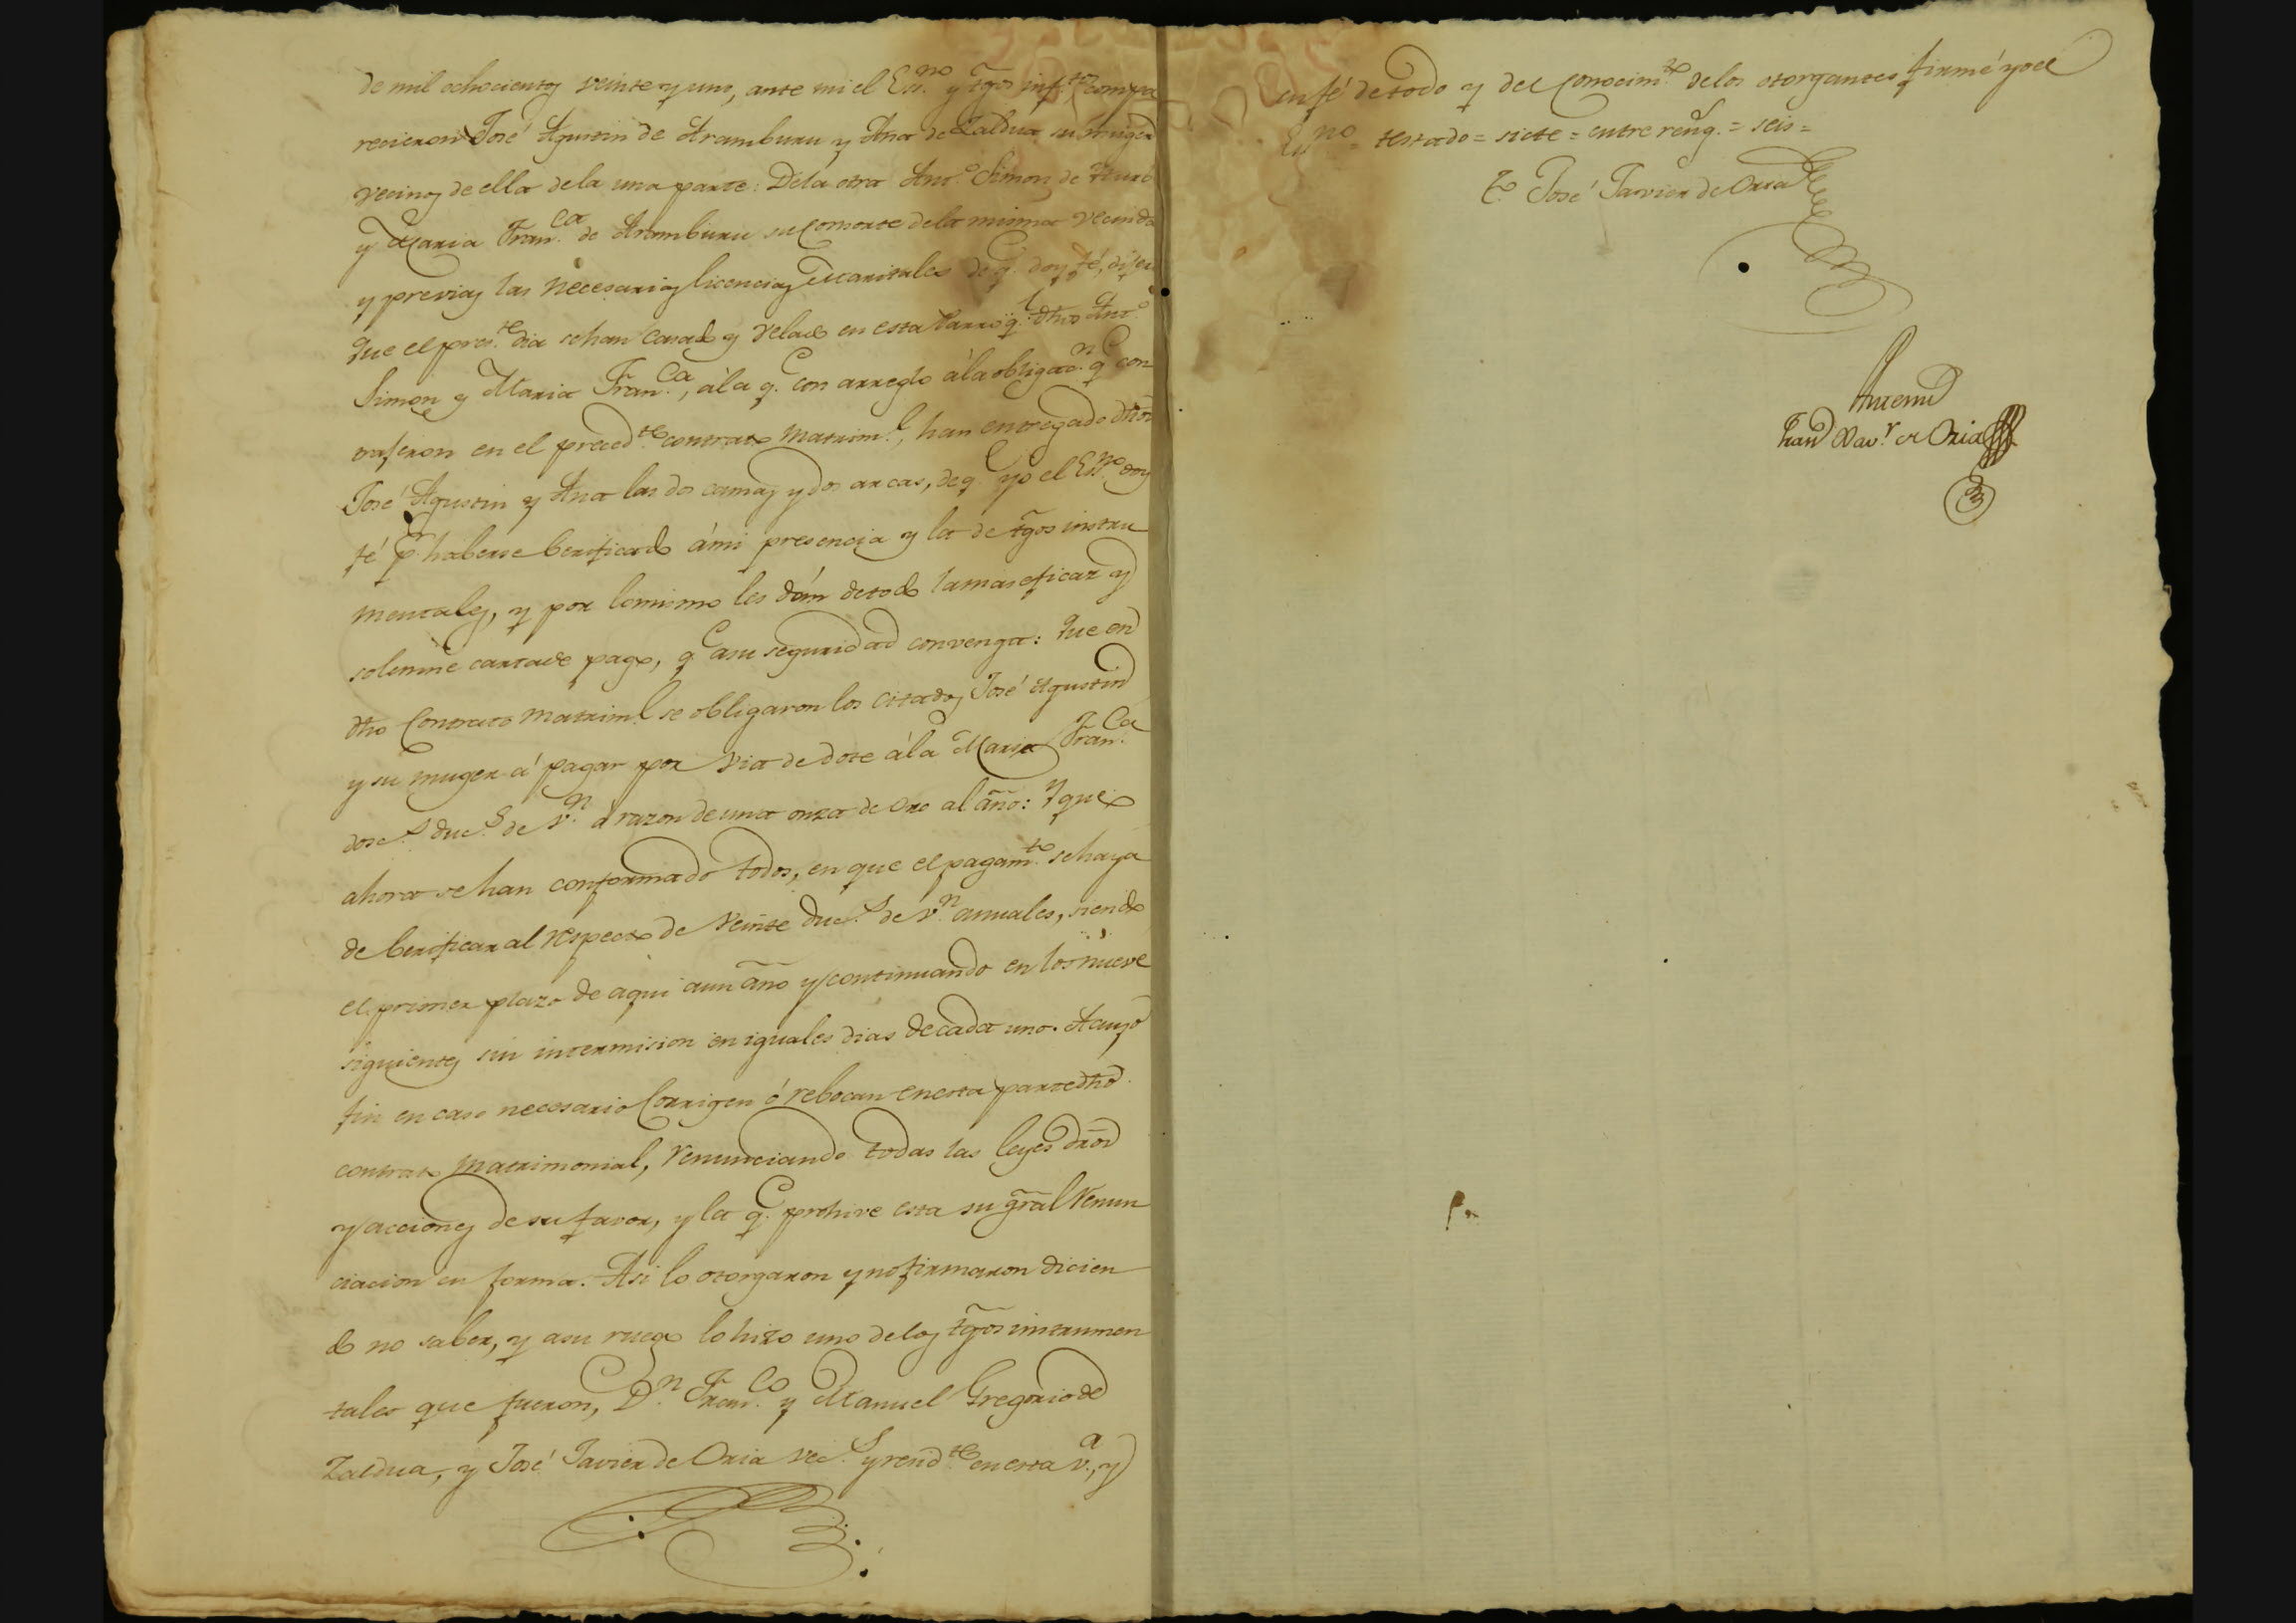 de mil ochocientos veinte y uno, ante mi el Es.no y tgos inf.tos compa
recieron José Agustin de Aramburu y Ana de Zaldua su muger
vecinos de ella de la una parte: De la otra Ant.o Simon de
y Maria Fran.ca de Aramburu su consorte de la misma vecinda
y previas las necesarias licencias Maritales de q.e doy fé, dijer
Que el pres.te dia se han casado y velado en esta Parroq.l dhos Ant.o
Simon y Maria Fran.ca, á la q.e con arreglo á la obligac.n q.e con
trajeron en el preced.te contrato matrim.l, han entregado dhos
José Agustin y Ana las dos camas y dos arcas, de q.e yo el Es.no doy
fé p.r haberse berificado á mi presencia y la de tgos instru
mentales, y por lo mismo les dán de todo la mas eficaz y
solemne carta de pago, q.e a su seguridad convenga: Que en
dho Contrato matrim.l se obligaron los citados José Agustin
y su muger á pagar por via de dote á la Maria Fran.ca
dosc.s duc.s de v.n á razon de una onza de Oro al año: Y que
ahora se han conformado todos, en que el pagam.to se haya
de berificar al respecto de veinte duc.s de v.n anuales, siendo
el primer plazo de aqui a un año y continuando en los nueve
siguientes sin intermision en iguales dias de cada uno. A cuyo
fin en caso necesario Corrigen ó rebocan en esta parte dho
contrato matrimonial, renunciando todas las leyes dros
y acciones de su favor, y la q.e prohive esta su gral renun
ciacion en forma. Asi lo otorgaron y no firmaron dicien
do no saber, y a su ruego lo hizo uno de los tgos instrumen
tales que fueron, D.n Fran.co y Manuel Gregorio de
Zaldua, y José Javier de Oria vec.s y resid.tes en esta v.a, y
en fé de todo y del conocim.to de los otorgantes firmé yo el
Es.no = testado = siete = entre reng.s = seis =
T.o José Javier de Oria
Ante mi
Fran.co Xav.r de Oria